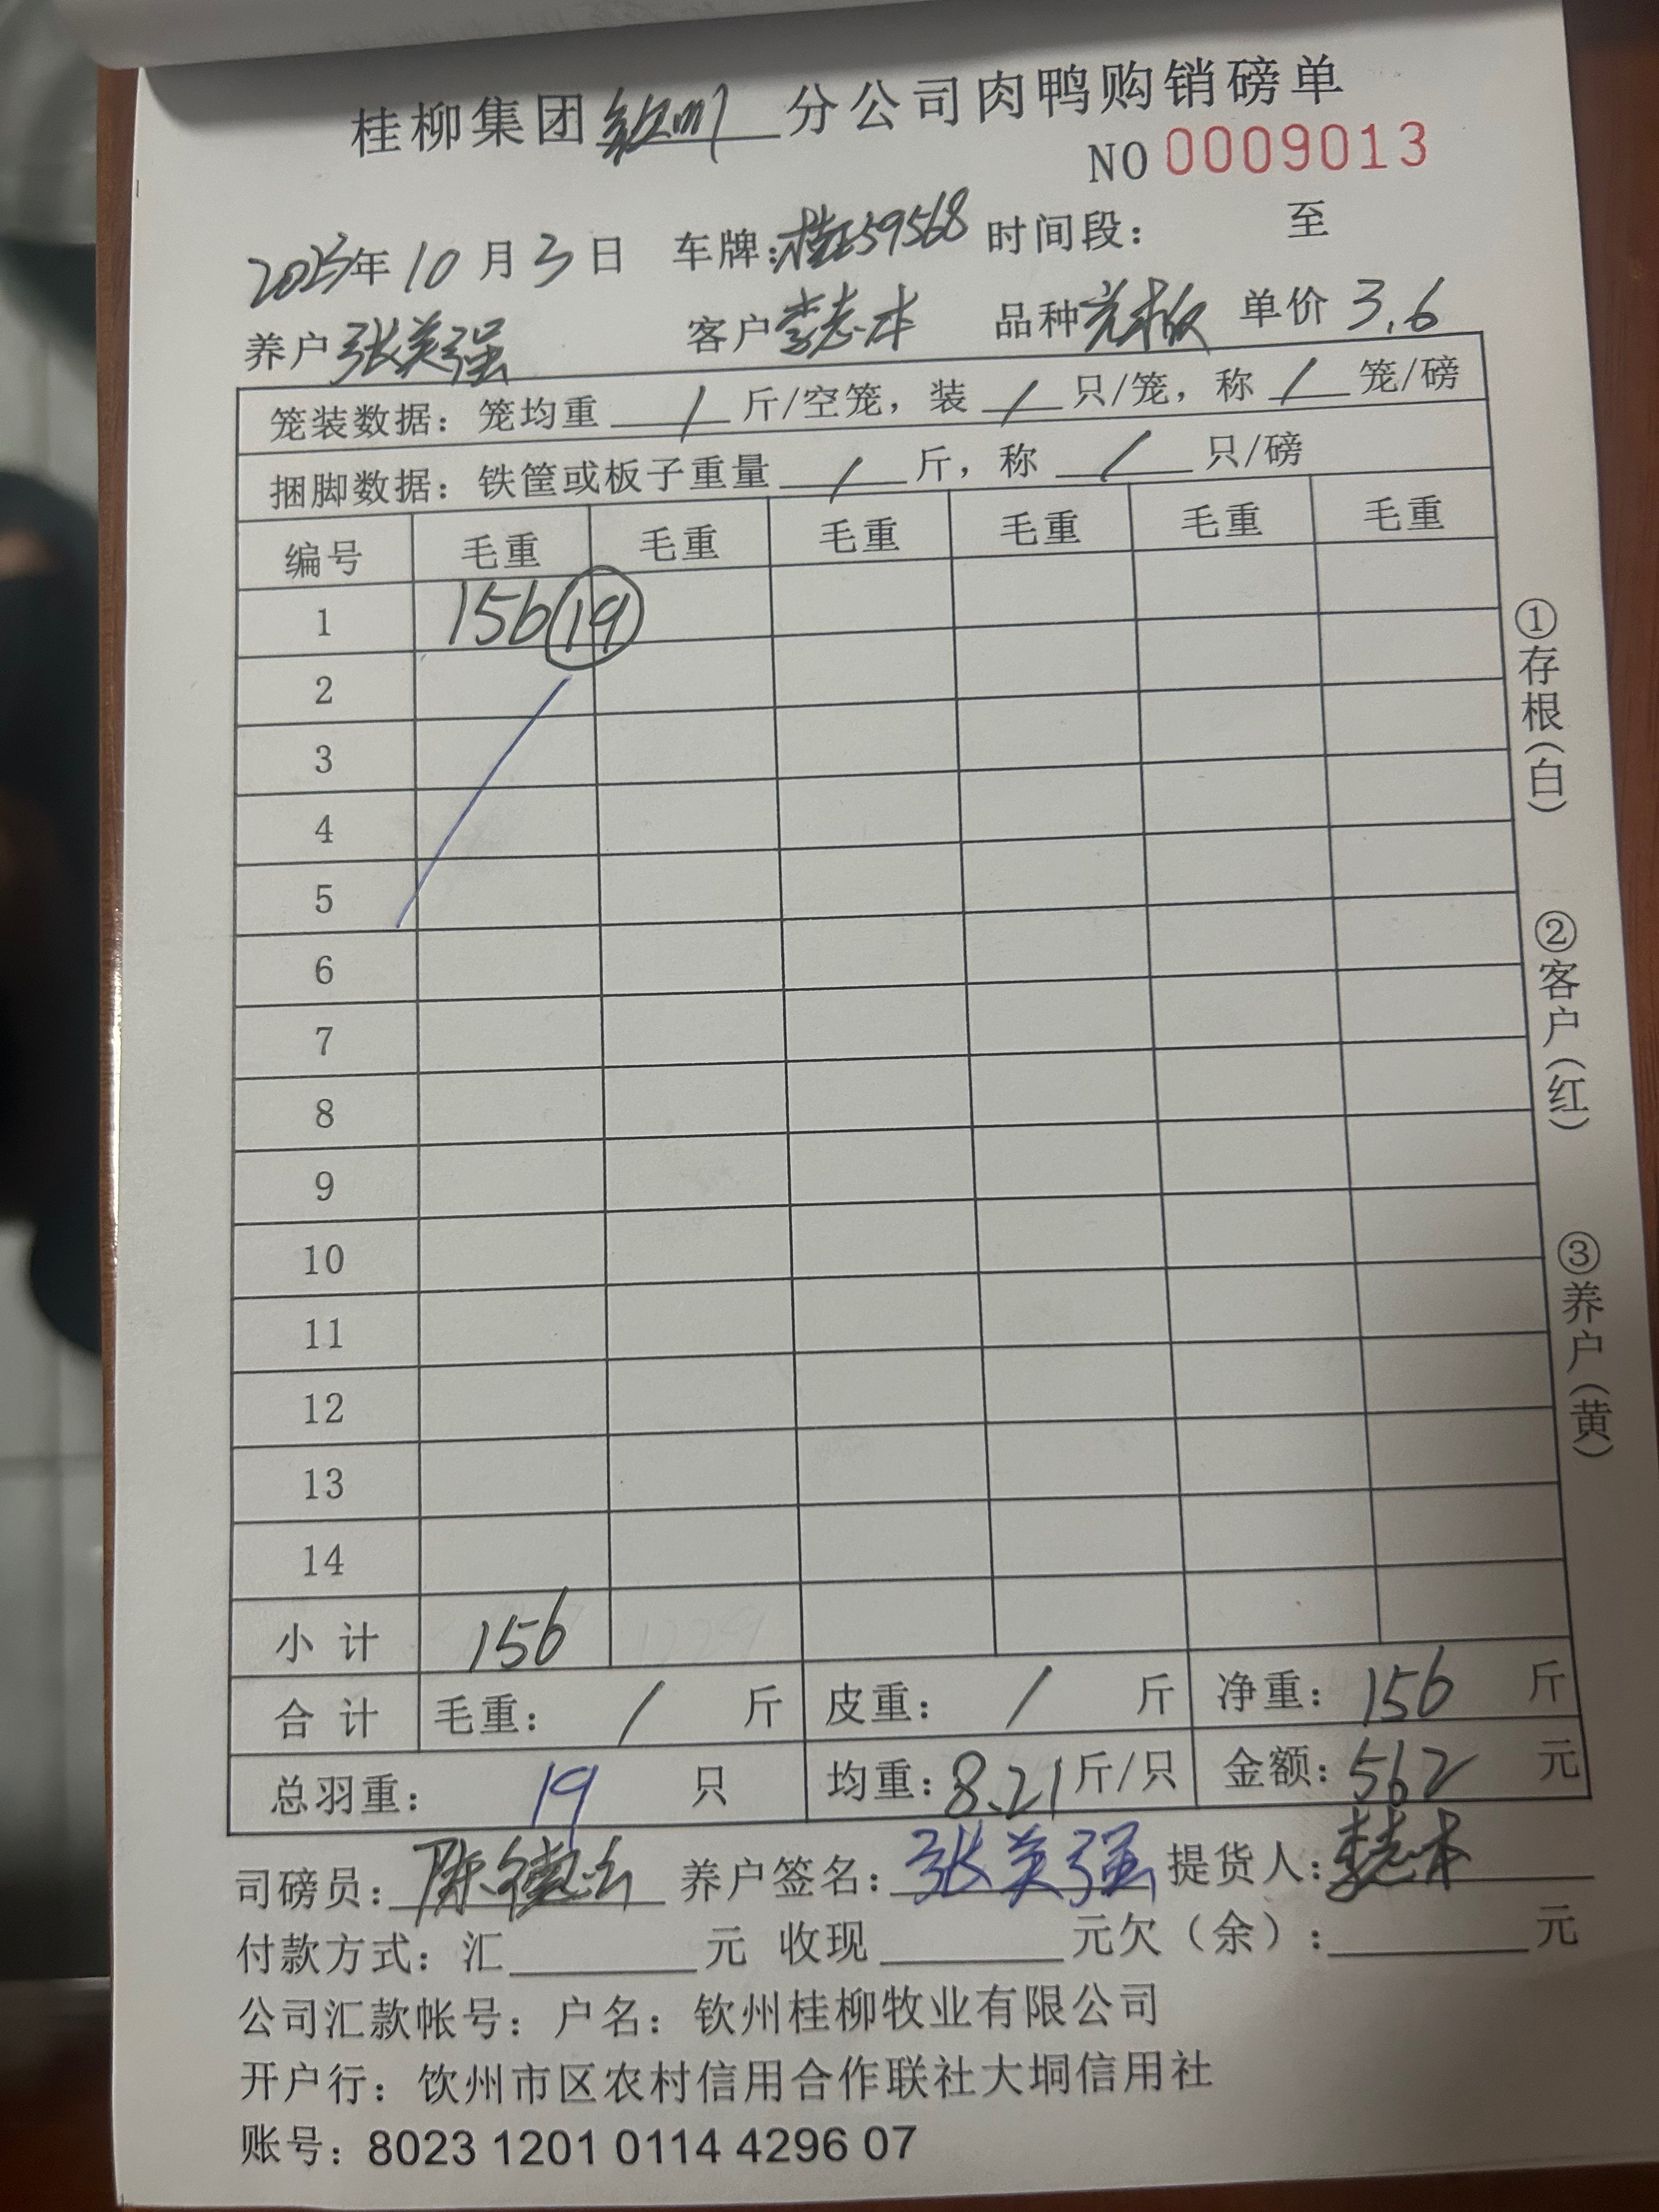 桂柳集团钦州分公司肉鸭购销磅单
NO 0009013
2025年10月3日 车牌:桂E59568 时间段： 至
养户 张美强 客户 李志本 品种 单价 3.6
笼装数据：笼均重 / 斤/空笼，装 / 只/笼，称 / 笼/磅
捆脚数据：铁筐或板子重量 / 斤，称 / 只/磅
编号 毛重 毛重 毛重 毛重 毛重 毛重
1 156 19
2
3
4
5
6
7
8
9
10
11
12
13
14
小计 156
合计 毛重： / 斤 皮重： / 斤 净重：156 斤
总羽重： 19 只 均重：8.21斤/只 金额：562 元
司磅员：陈 养户签名：张美强 提货人：李志本
付款方式：汇 元 收现 元欠（余）： 元
公司汇款帐号：户名：钦州桂柳牧业有限公司
开户行：钦州市区农村信用合作联社大垌信用社
账号：8023 1201 0114 4296 07
①存根（白） ②客户（红） ③养户（黄）